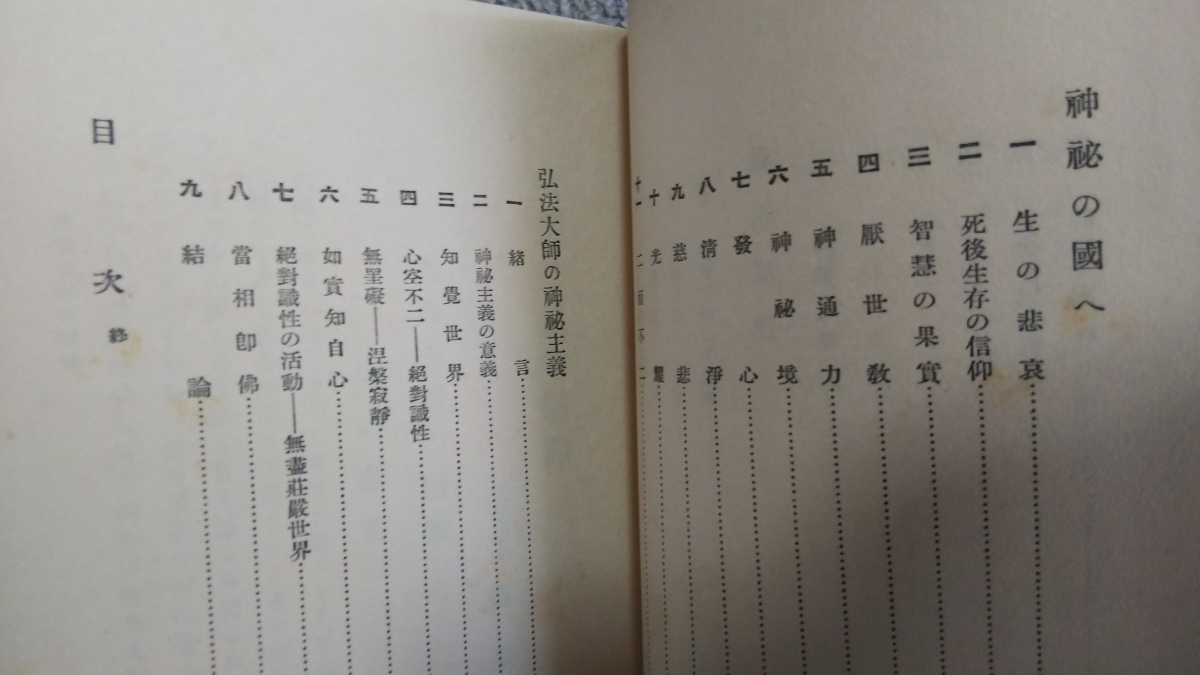 神祕の國へ
一 生の悲哀
二 死後生存の信仰
三 智慧の果實
四 厭世教
五 神通力
六 神祕境
七 發心
八 淸淨
九 慈悲
十 光
十一 二而不二
弘法大師の神祕主義
一 緖言
二 神祕主義の意義
三 知覺世界
四 心空不二――絕對識性
五 無罣礙――涅槃寂靜
六 如實知自心
七 絕對識性の活動――無盡莊嚴世界
八 當相卽佛
九 結論
目次 終